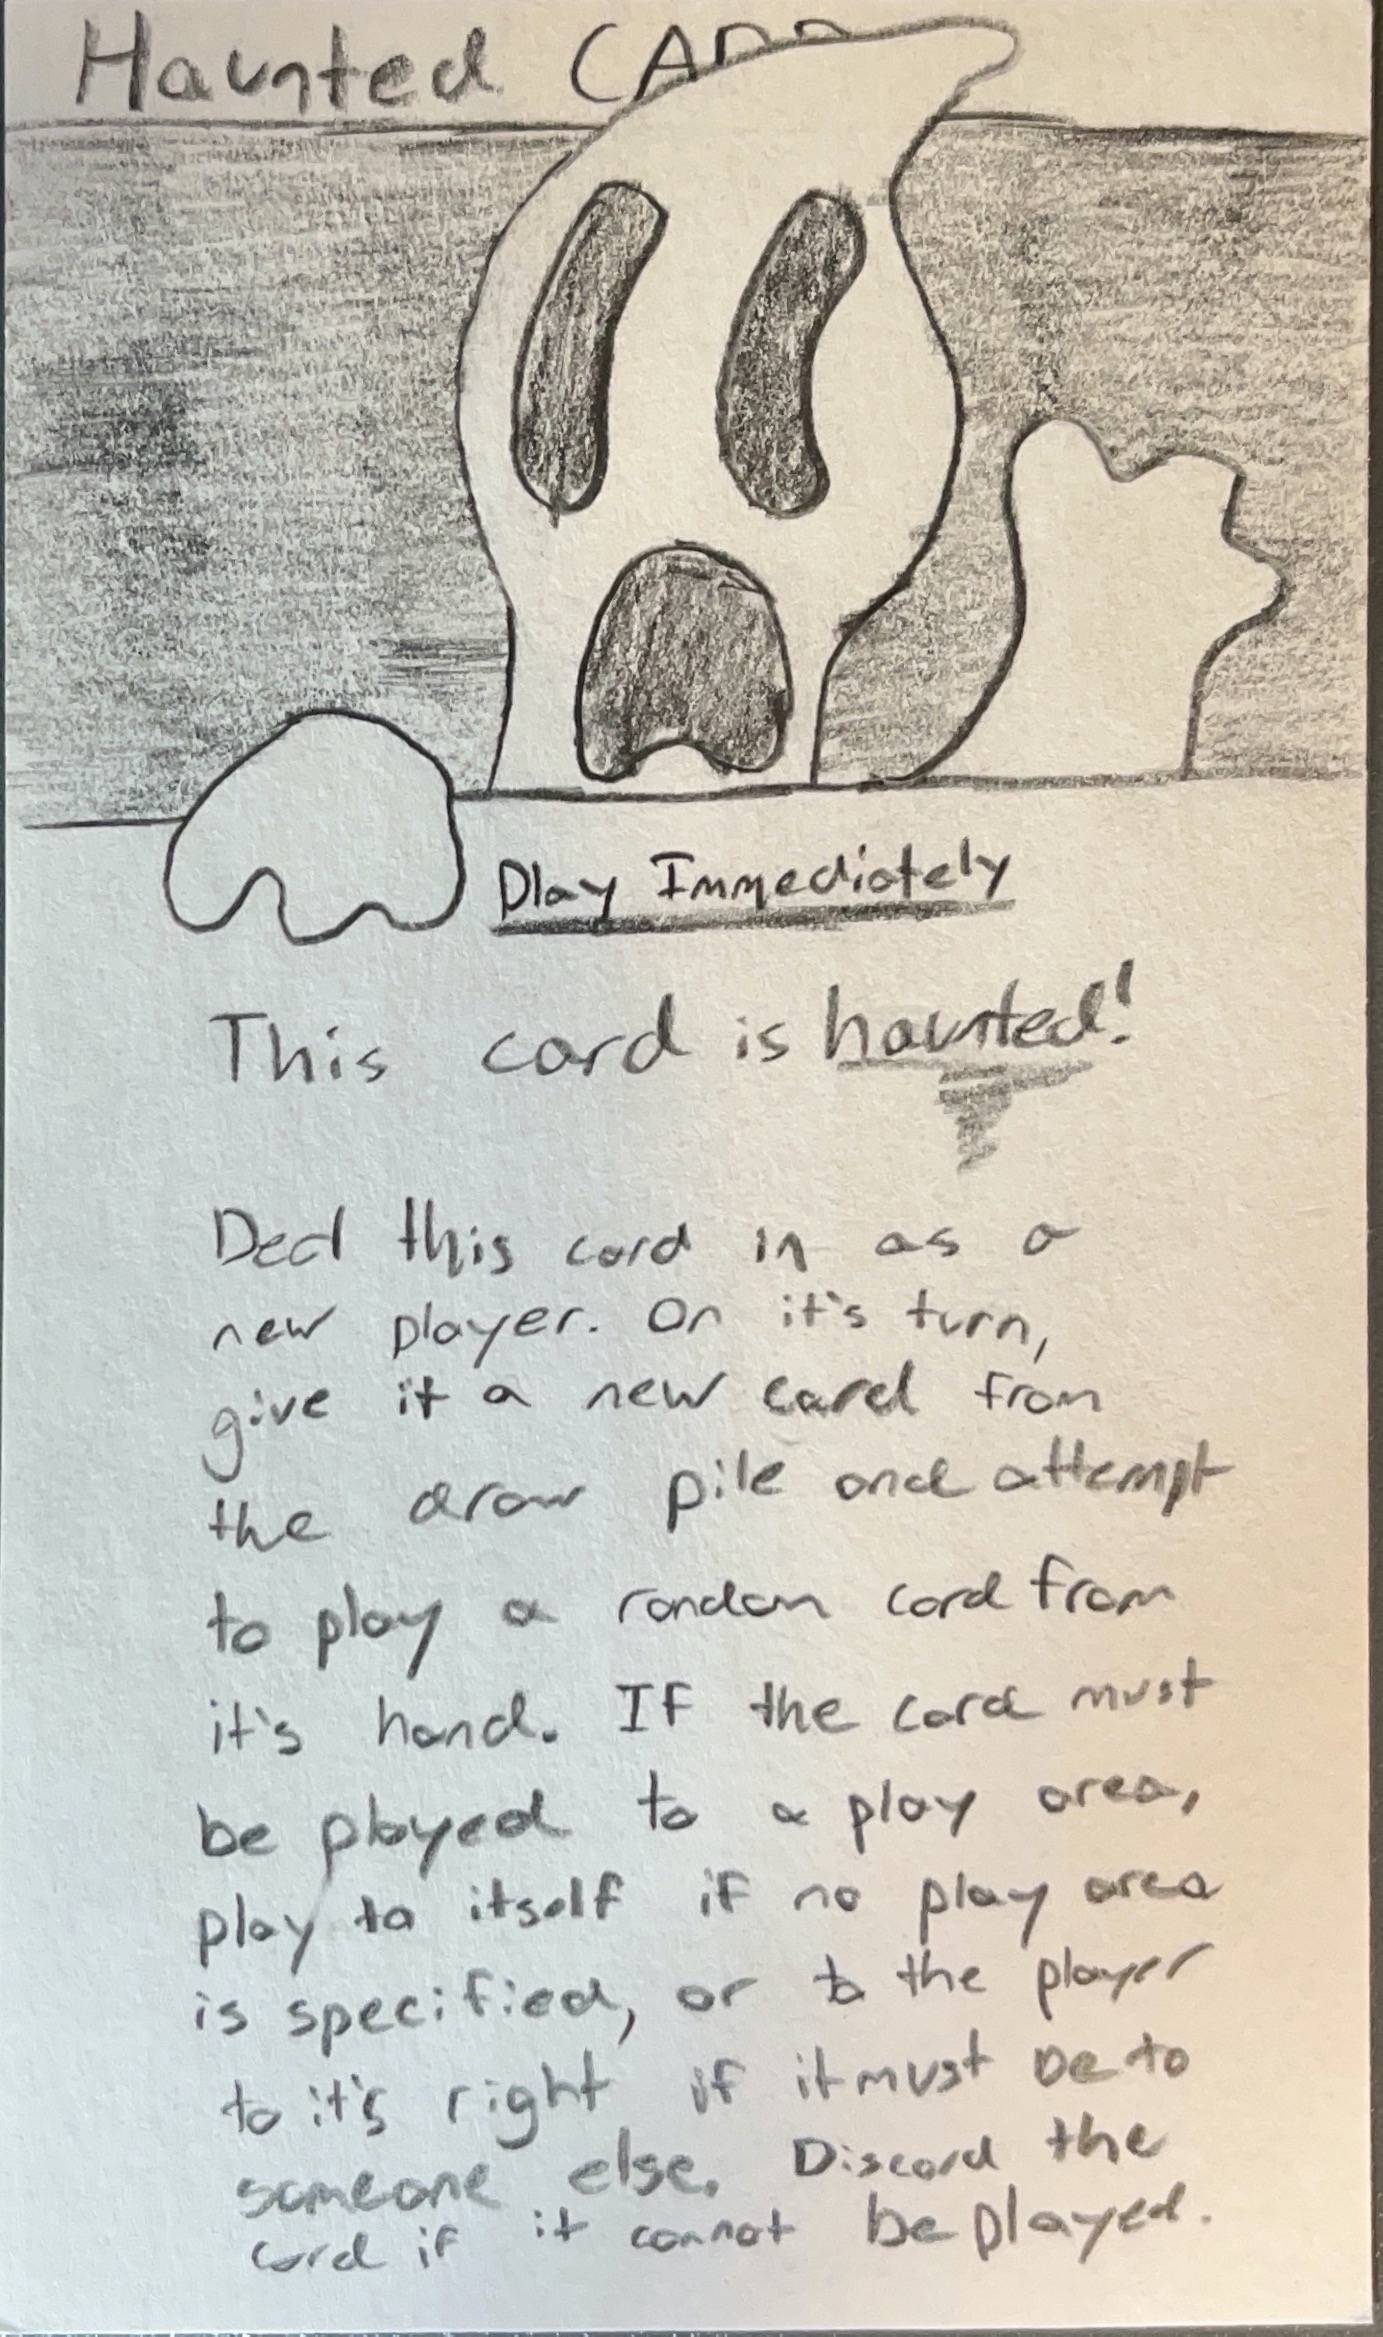 Haunted CARD
Play Immediately
This card is haunted!
Deal this card in as a
new player. On it's turn,
give it a new card from
the draw pile and attempt
to play a random card from
it's hand. If the card must
be played to a play area,
play to itself if no play area
is specified, or to the player
to it's right if it must be to
someone else. Discard the
card if it cannot be played.